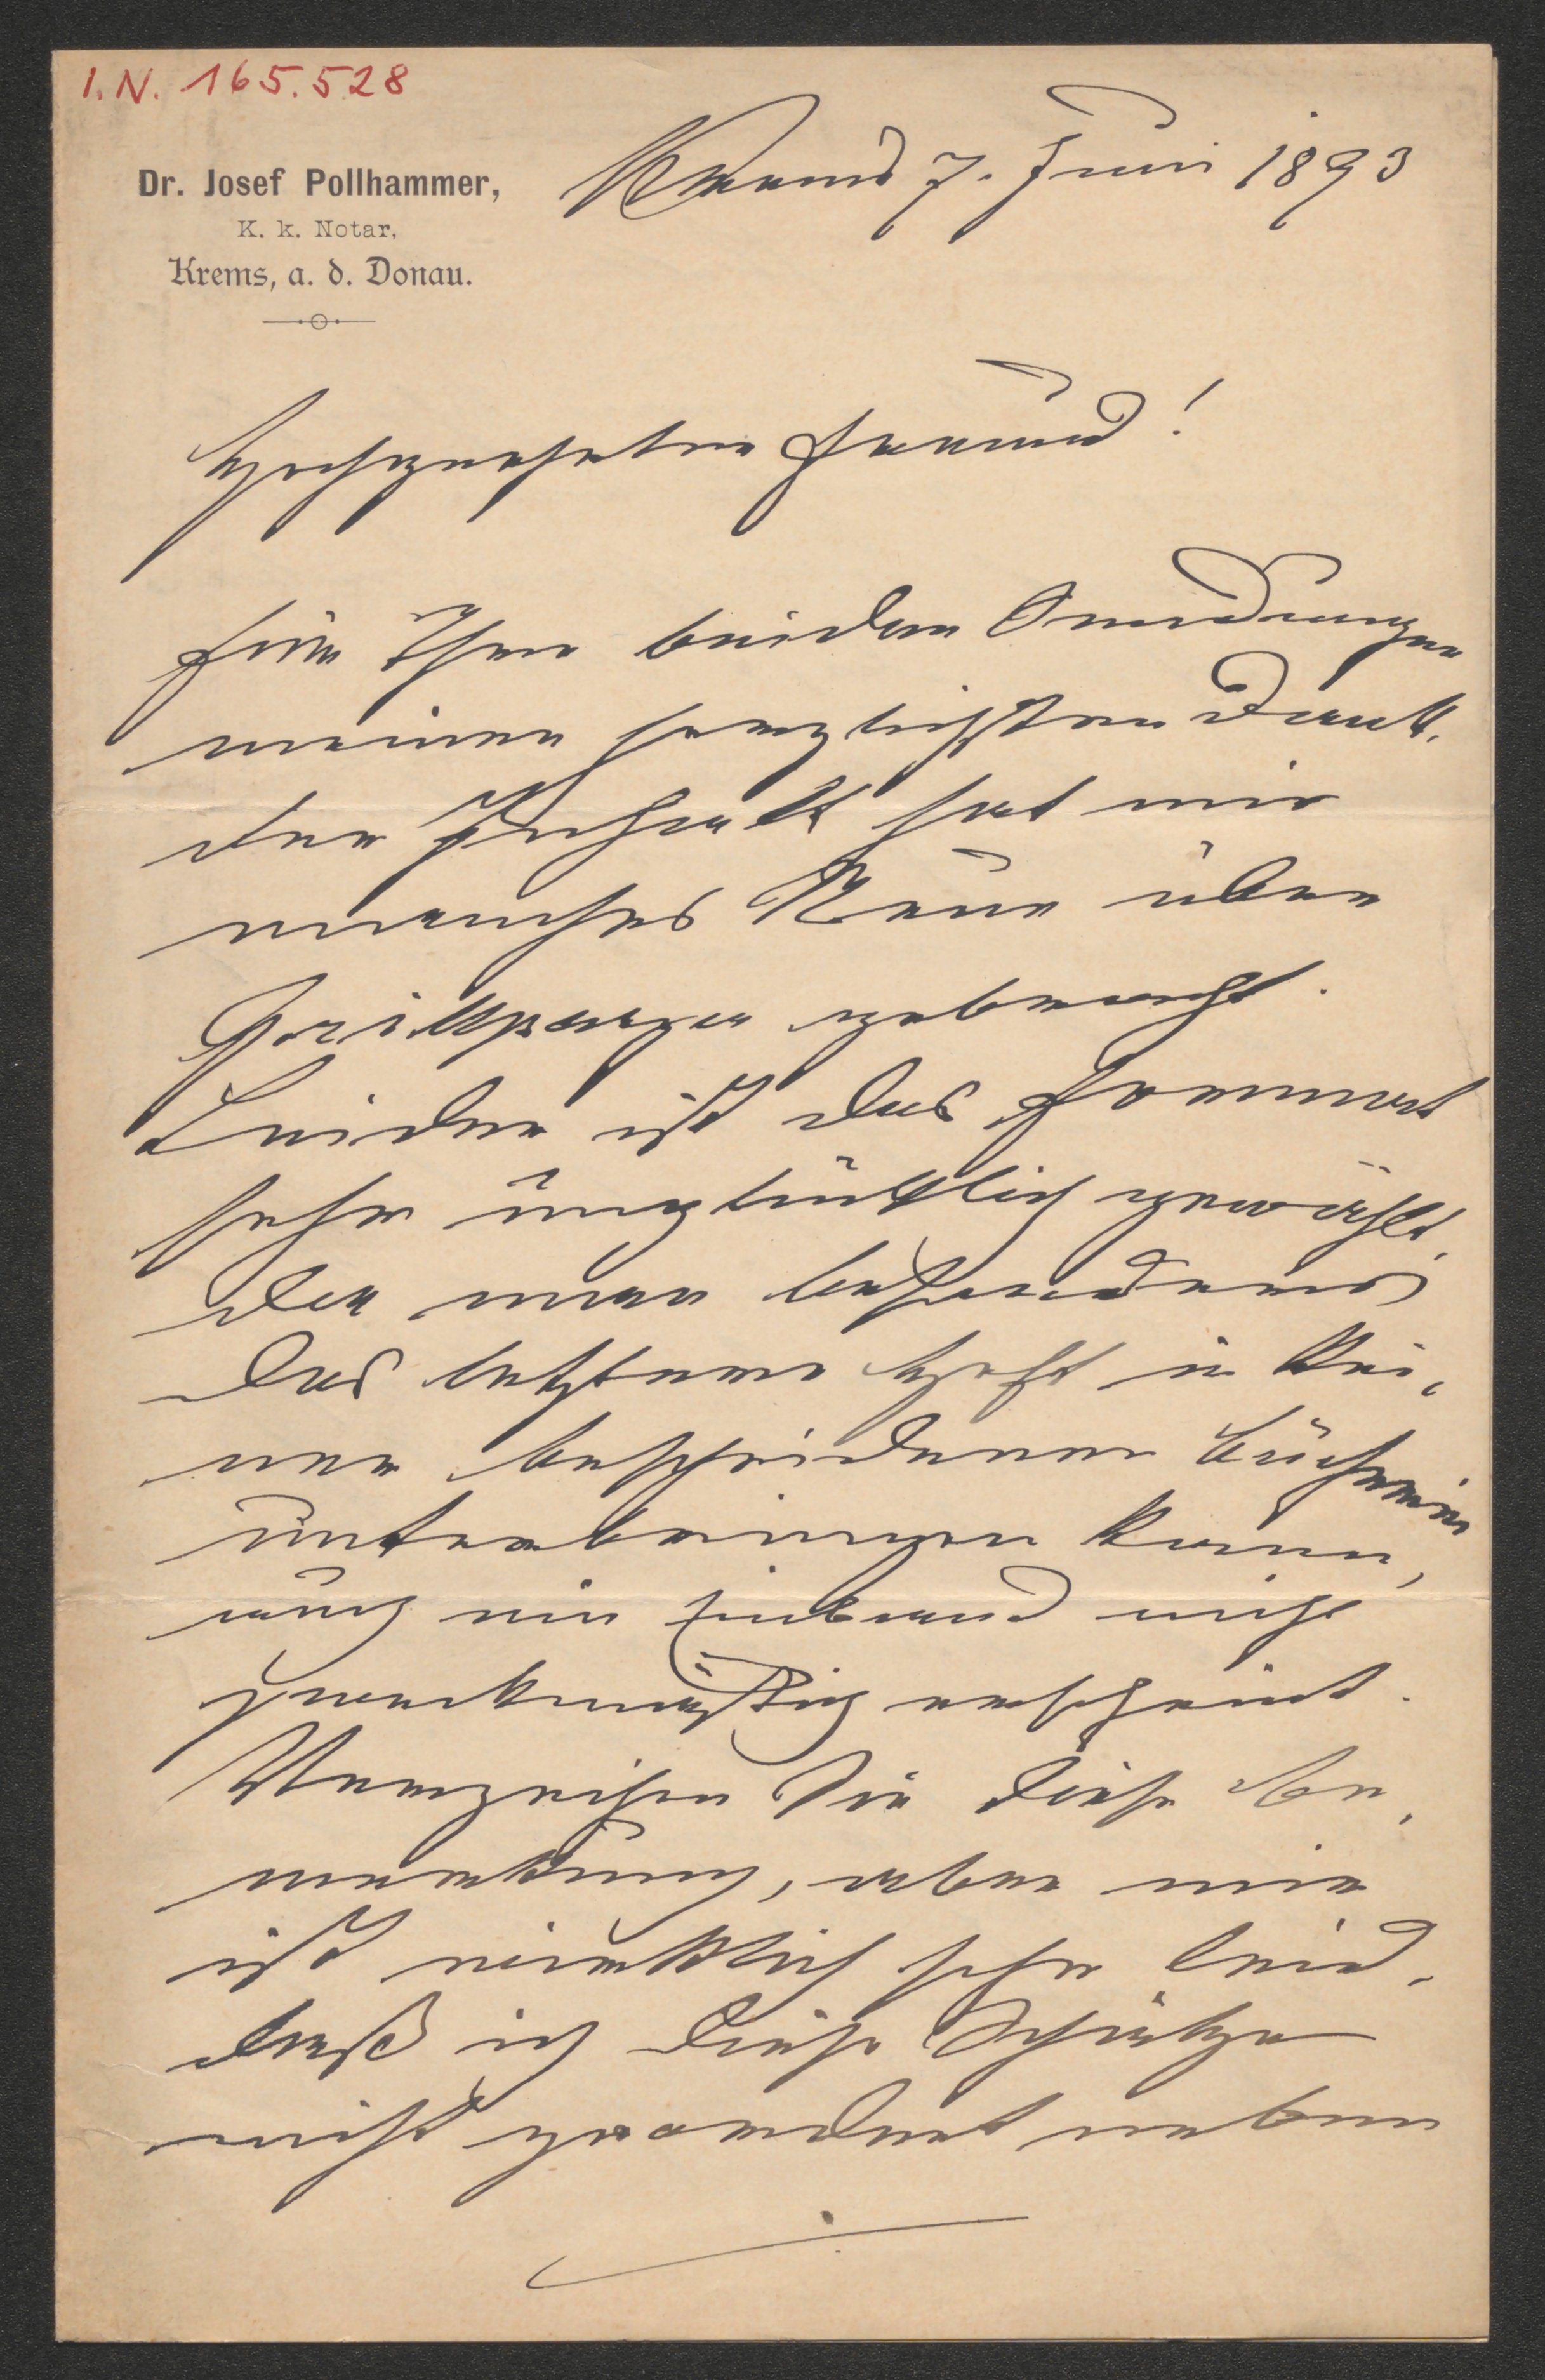 I.N. 165.528
Dr. Josef Pollhammer,
K. k. Notar,
Krems, a. d. Donau.
Krems 7. Juni 1893
Hochgeehrter Freund!
Für Ihre beiden Sendungen
meinen herzlichsten Dank.
Der Inhalt hat mir
manches Neue über
Grillparzer gebracht.
Leider ist das Format
sehr unglücklich gewählt,
da man besonders
das letztere Heft in kei-
ner bescheidenen Bücherei
unterbringen kann,
und ein Einband nicht
zweckmäßig erscheint.
Verzeihen Sie diese Be-
merkung, aber mir
ist wirklich sehr leid,
daß ich diese Schätze
nicht geordnet neben